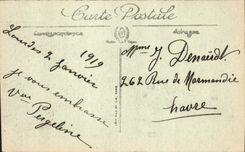 Carte Postale
Correspondance
Adresse
Lourdes 2 Janvier 1919
je vous embrasse
Mme J. Denaerdt
262 Rue de Normandie
havre